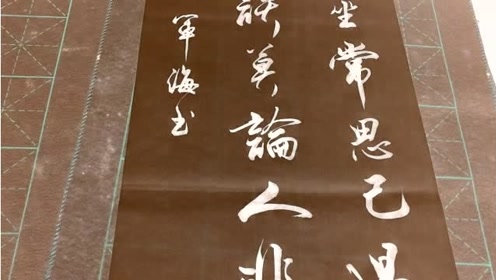 坐常思己過
談莫論人非
军海书